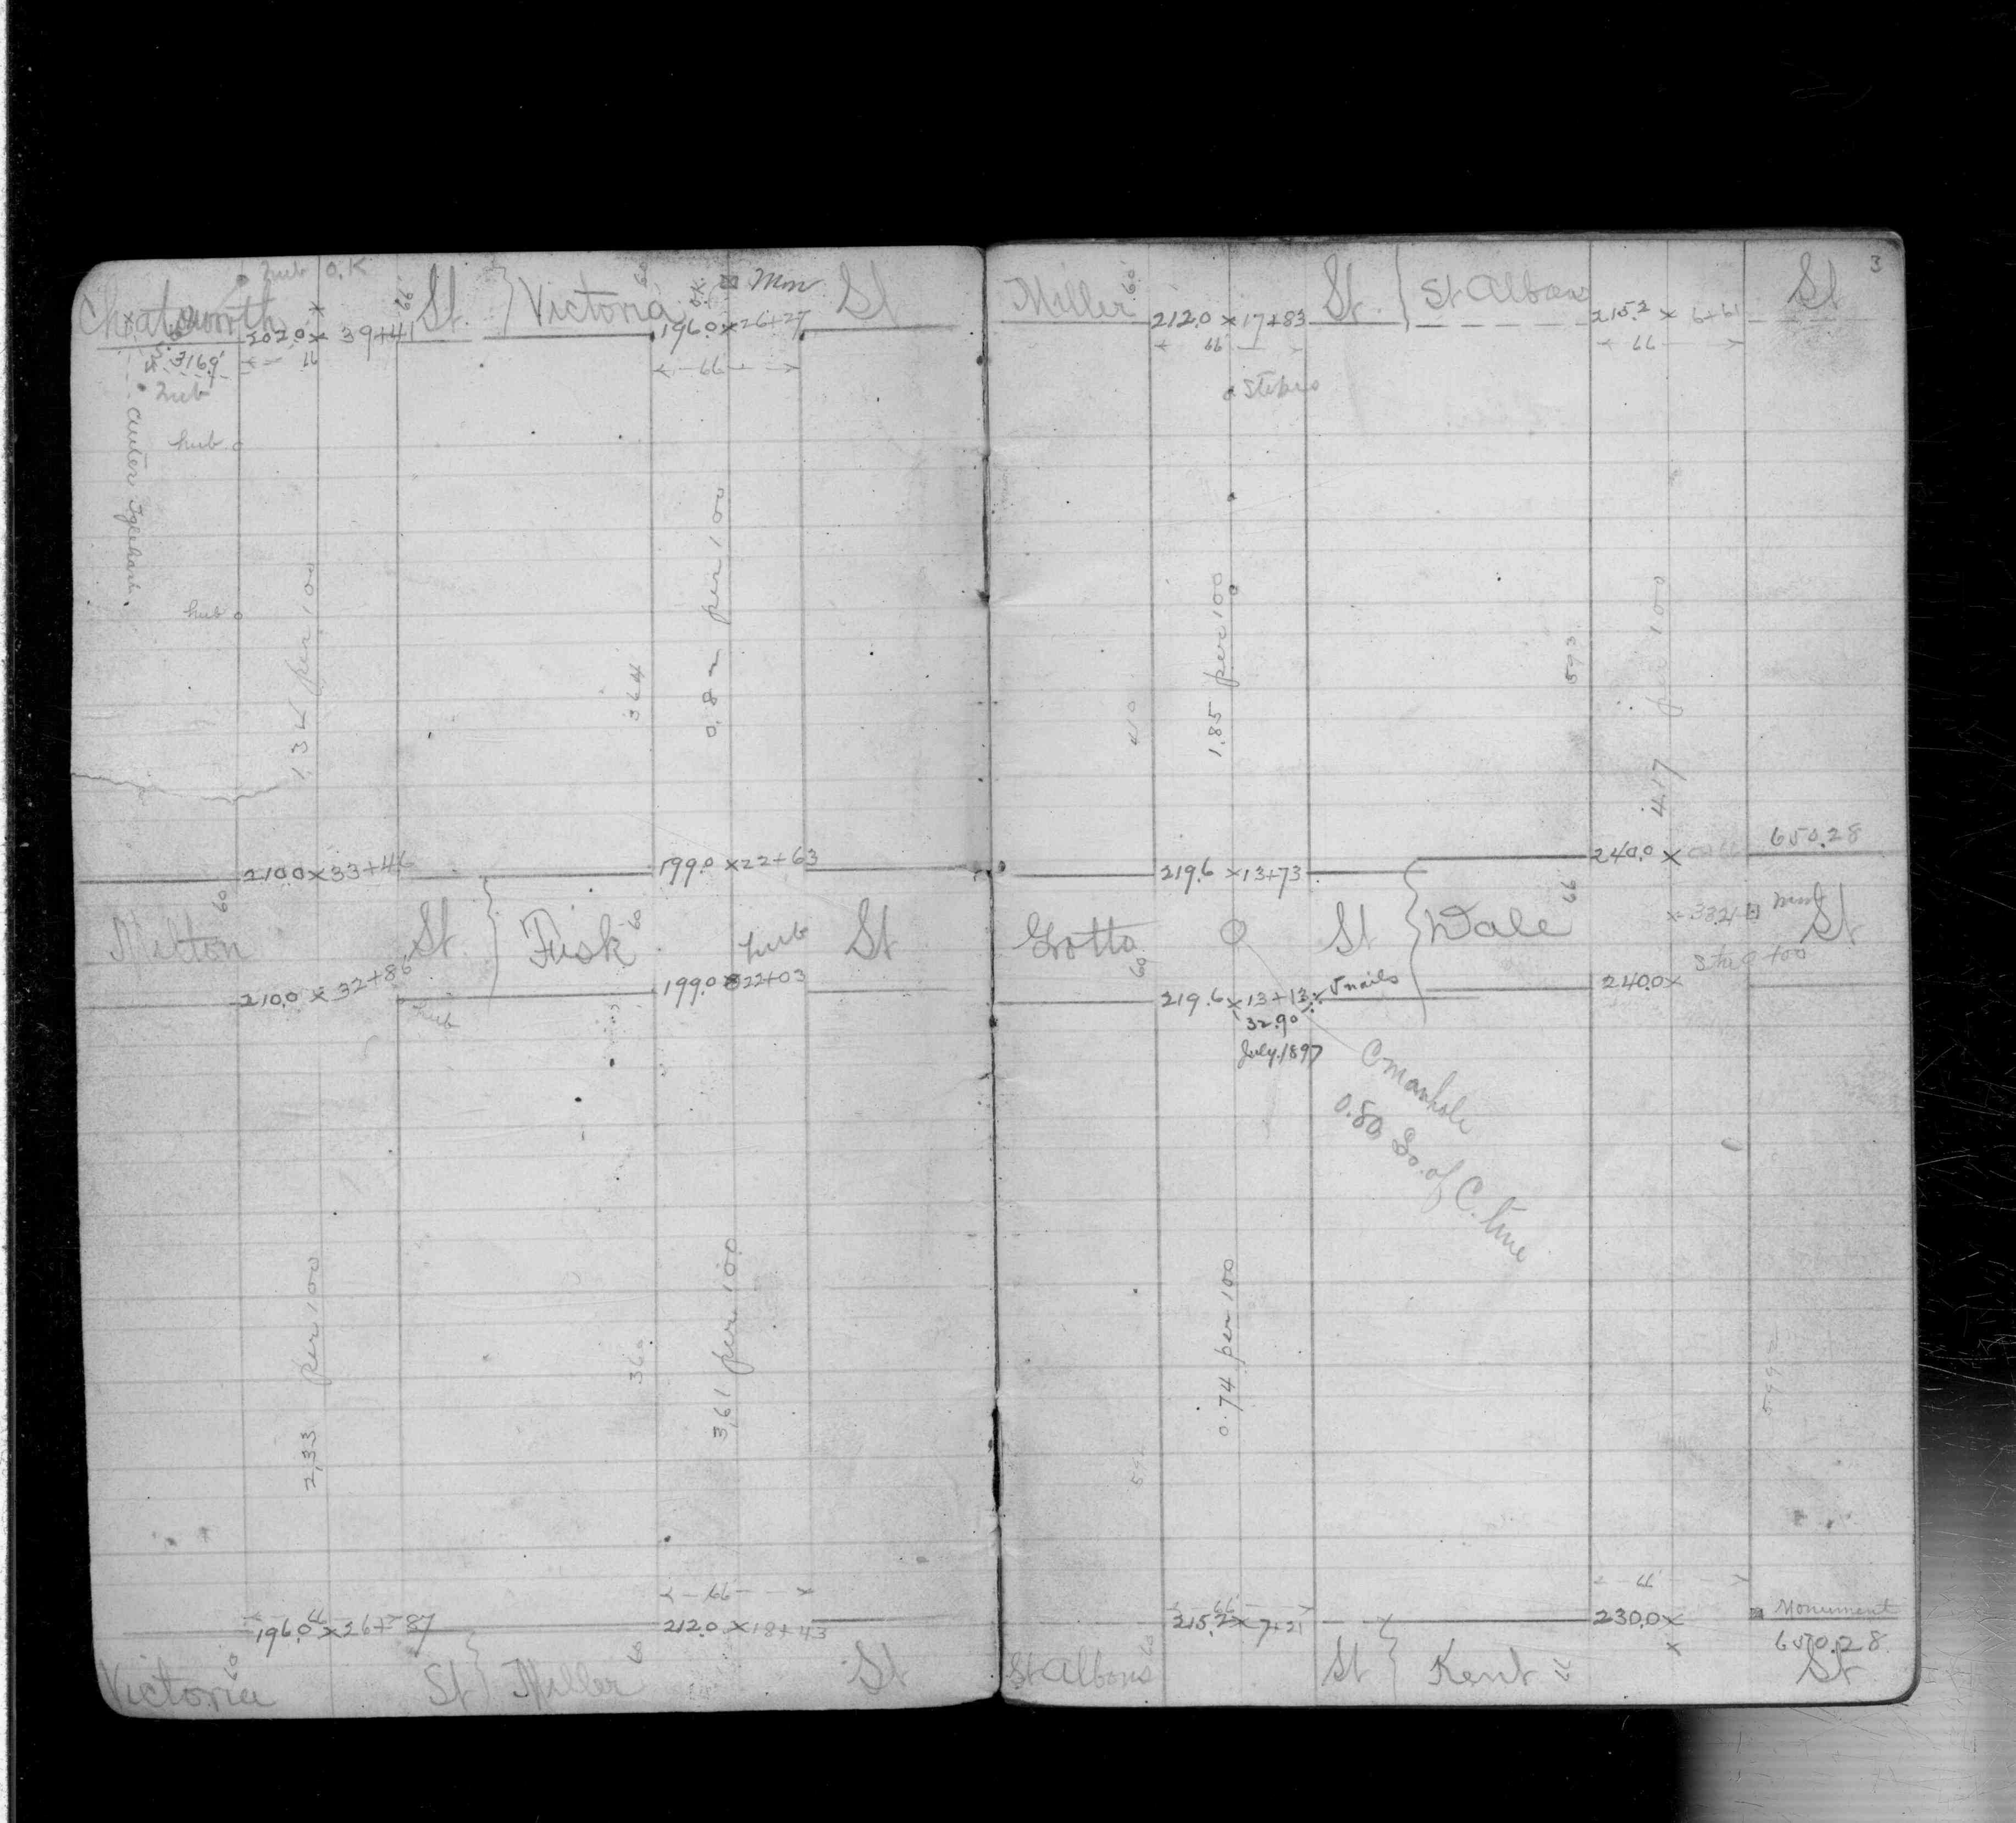 hub O.K
Chatsworth 66 St.
202.0 x 39+41
316.9'
66
hub
hub
hub
1.34 per 100
210.0 x 33+46
Milton 60 St.
210.0 x 32+86
hub
2.33 per 100
66
196.0 x 26+87
Victoria 60 St
Victoria 60 O.K. Mon St
196.0 x 26+27
66
364
0.82 per 100
199.0 x 22+63
Fisk 60 hub St
199.0 x 22+03
360
3.61 per 100
66
212.0 x 18+43
Miller 60 St
3
Miller 60 St.
212.0 x 17+83
66
410
1.85 per 100
219.6 x 13+73
Grotto 60 St
219.6 x 13+13 nails
32.90
July. 1897
C manhole
0.80 So. of C. line
0.74 per 100
66
215.2 x 7+21
St Albans 60 St
St Albans St
215.2 x 6+61
66
593
4.17 per 100
240.0 x 650.28
Dale 66 St
x 33.21 mont
240.0 x
66
230.0 x Monument
650.28
Kent 66 St